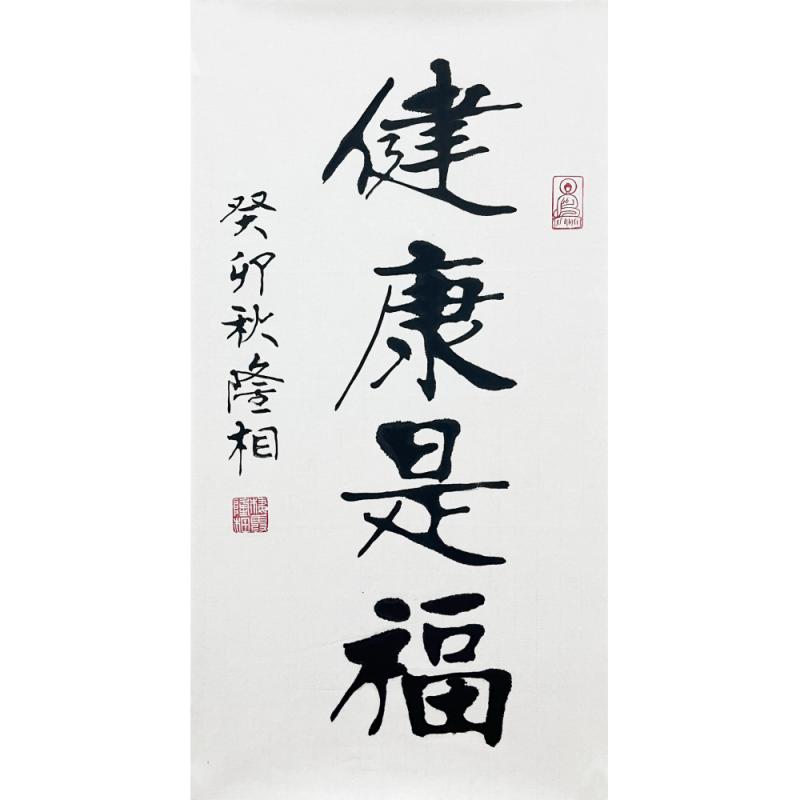 健康是福
癸卯秋隆相